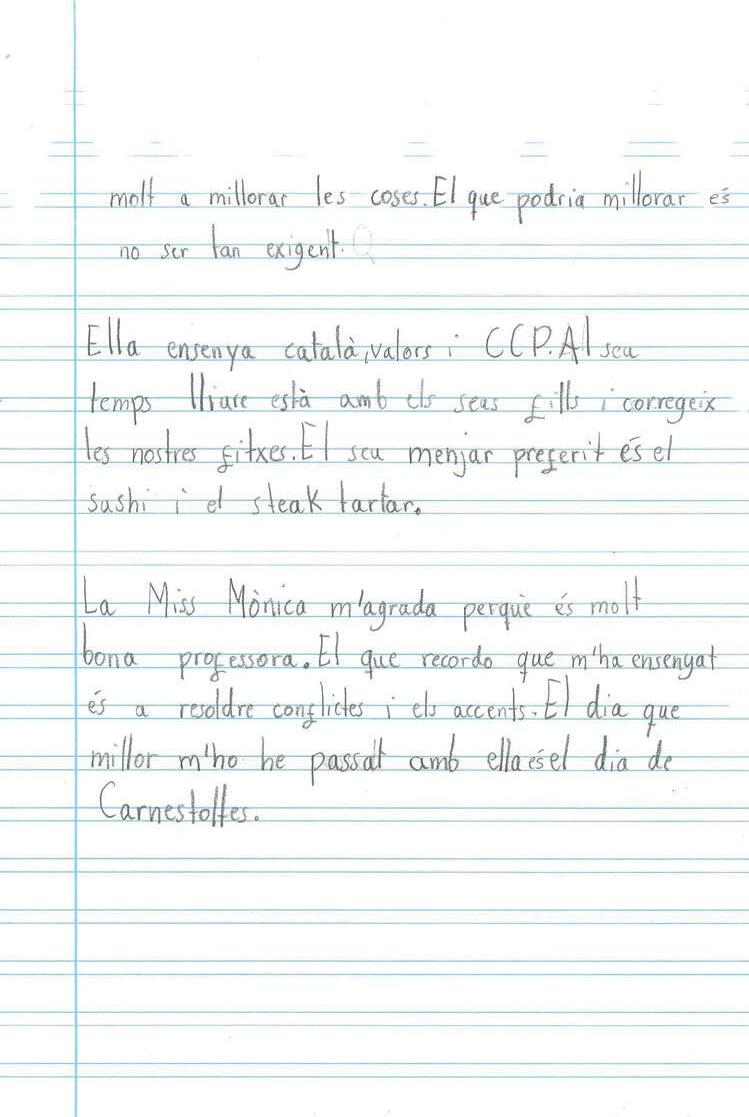 molt a millorar les coses. El que podria millorar és
no ser tan exigent.
Ella ensenya català, valors i CCP. Al seu
temps lliure està amb els seus fills i corregeix
les nostres fitxes. El seu menjar preferit és el
sushi i el steak tartar.
La Miss Mònica m'agrada perquè és molt
bona professora. El que recordo que m'ha ensenyat
és a resoldre conflictes i els accents. El dia que
millor m'ho he passat amb ella és el dia de
Carnestoltes.